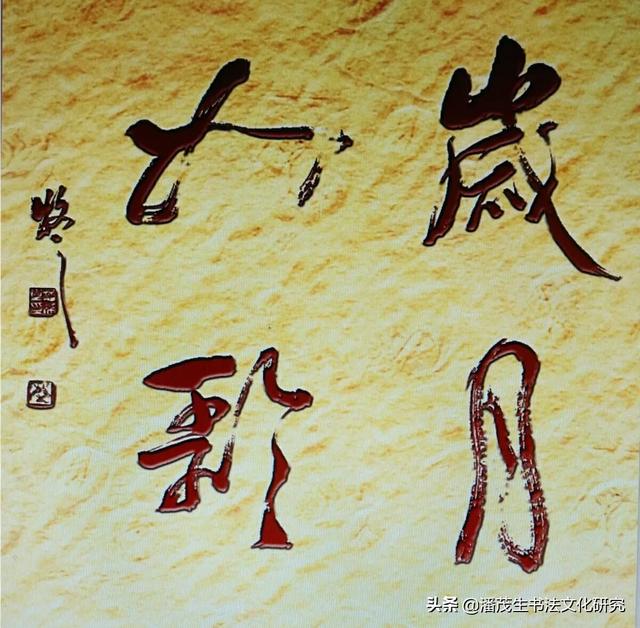 歲月
如歌
头条 @潘茂生书法文化研究